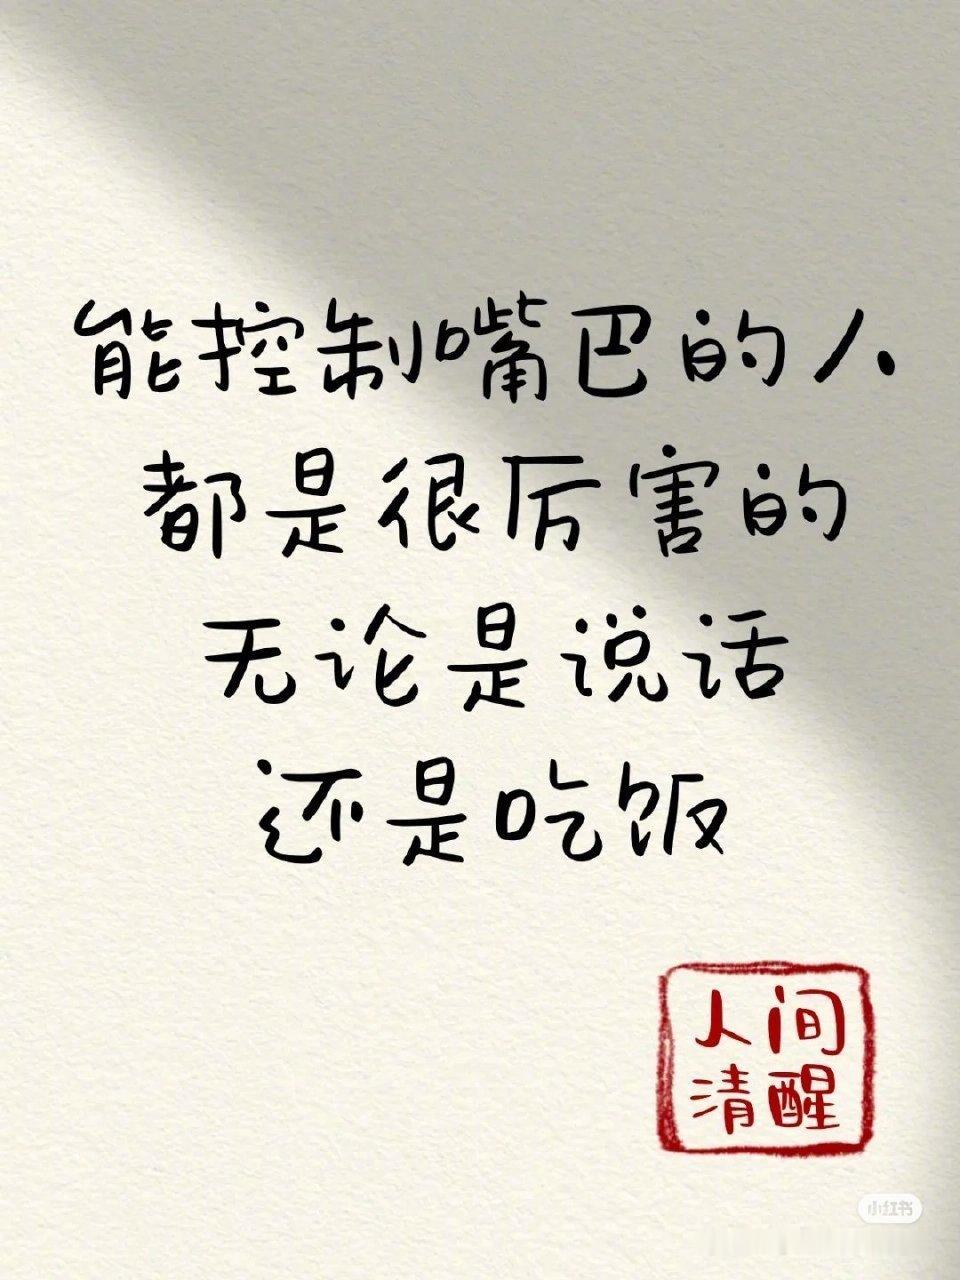 能控制嘴巴的人
都是很厉害的
无论是说话
还是吃饭
人间
清醒
小红书